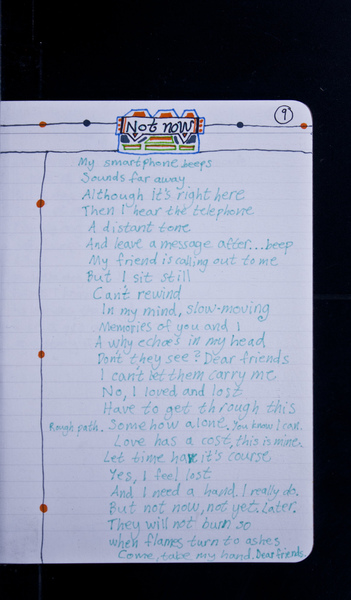 9
Not now
My smartphone beeps
Sounds far away
Although it's right here
Then I hear the telephone
A distant tone
And leave a message after...beep
My friend is calling out to me
But I sit still
Can't rewind
In my mind, slow-moving
Memories of you and I
A why echoes in my head
Don't they see? Dear friends
I can't let them carry me
No, I loved and lost
Have to get through this
Rough path. Somehow alone. You know I can.
Love has a cost, this is mine.
Let time have it's course
Yes, I feel lost
And I need a hand. I really do.
But not now, not yet. Later.
They will not burn so
when flames turn to ashes
Come, take my hand. Dear friends.